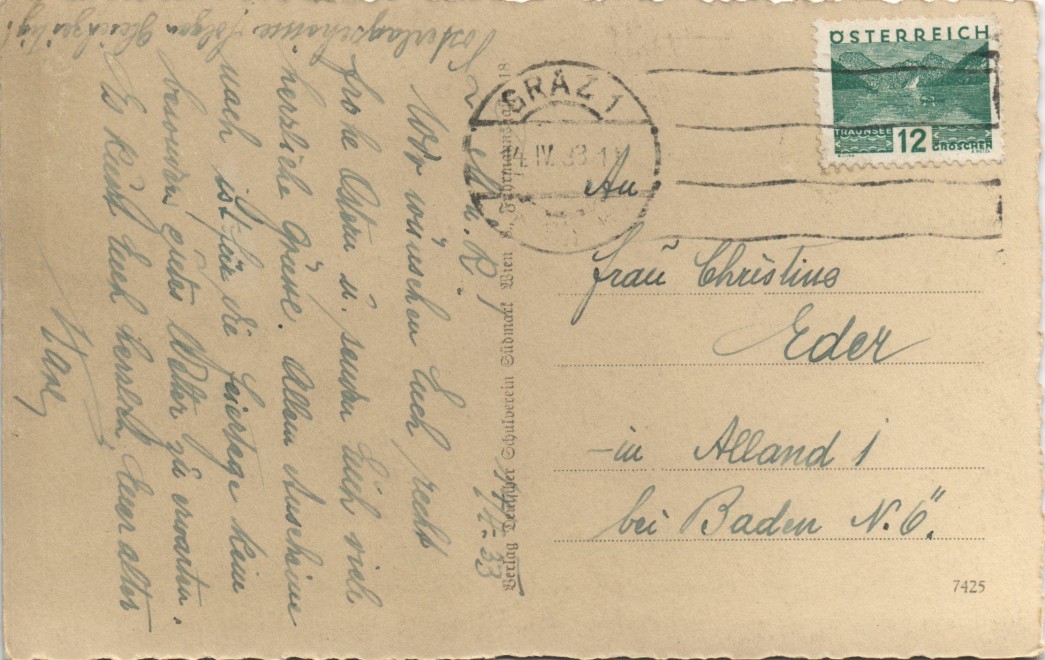 14.-4.-33
L. M. R.!
Wir wünschen Euch recht
frohe Ostern u. senden Euch viele
herzliche Grüsse. Allem Anscheine
nach ist für die Feiertage kein
besonders gutes Wetter zu erwarten.
Es küsst Euch herzlich Euer alter
Osterlagschause folgen gleichzeitig!
Verlag Deutscher Schulverein Südmark Wien 8., Fuhrmannsgasse 18
GRAZ 1
IV. 33
ÖSTERREICH
TRAUNSEE
12
GROSCHEN
An
Frau Christine
Eder
in Alland 1
bei Baden N.Ö.
7425